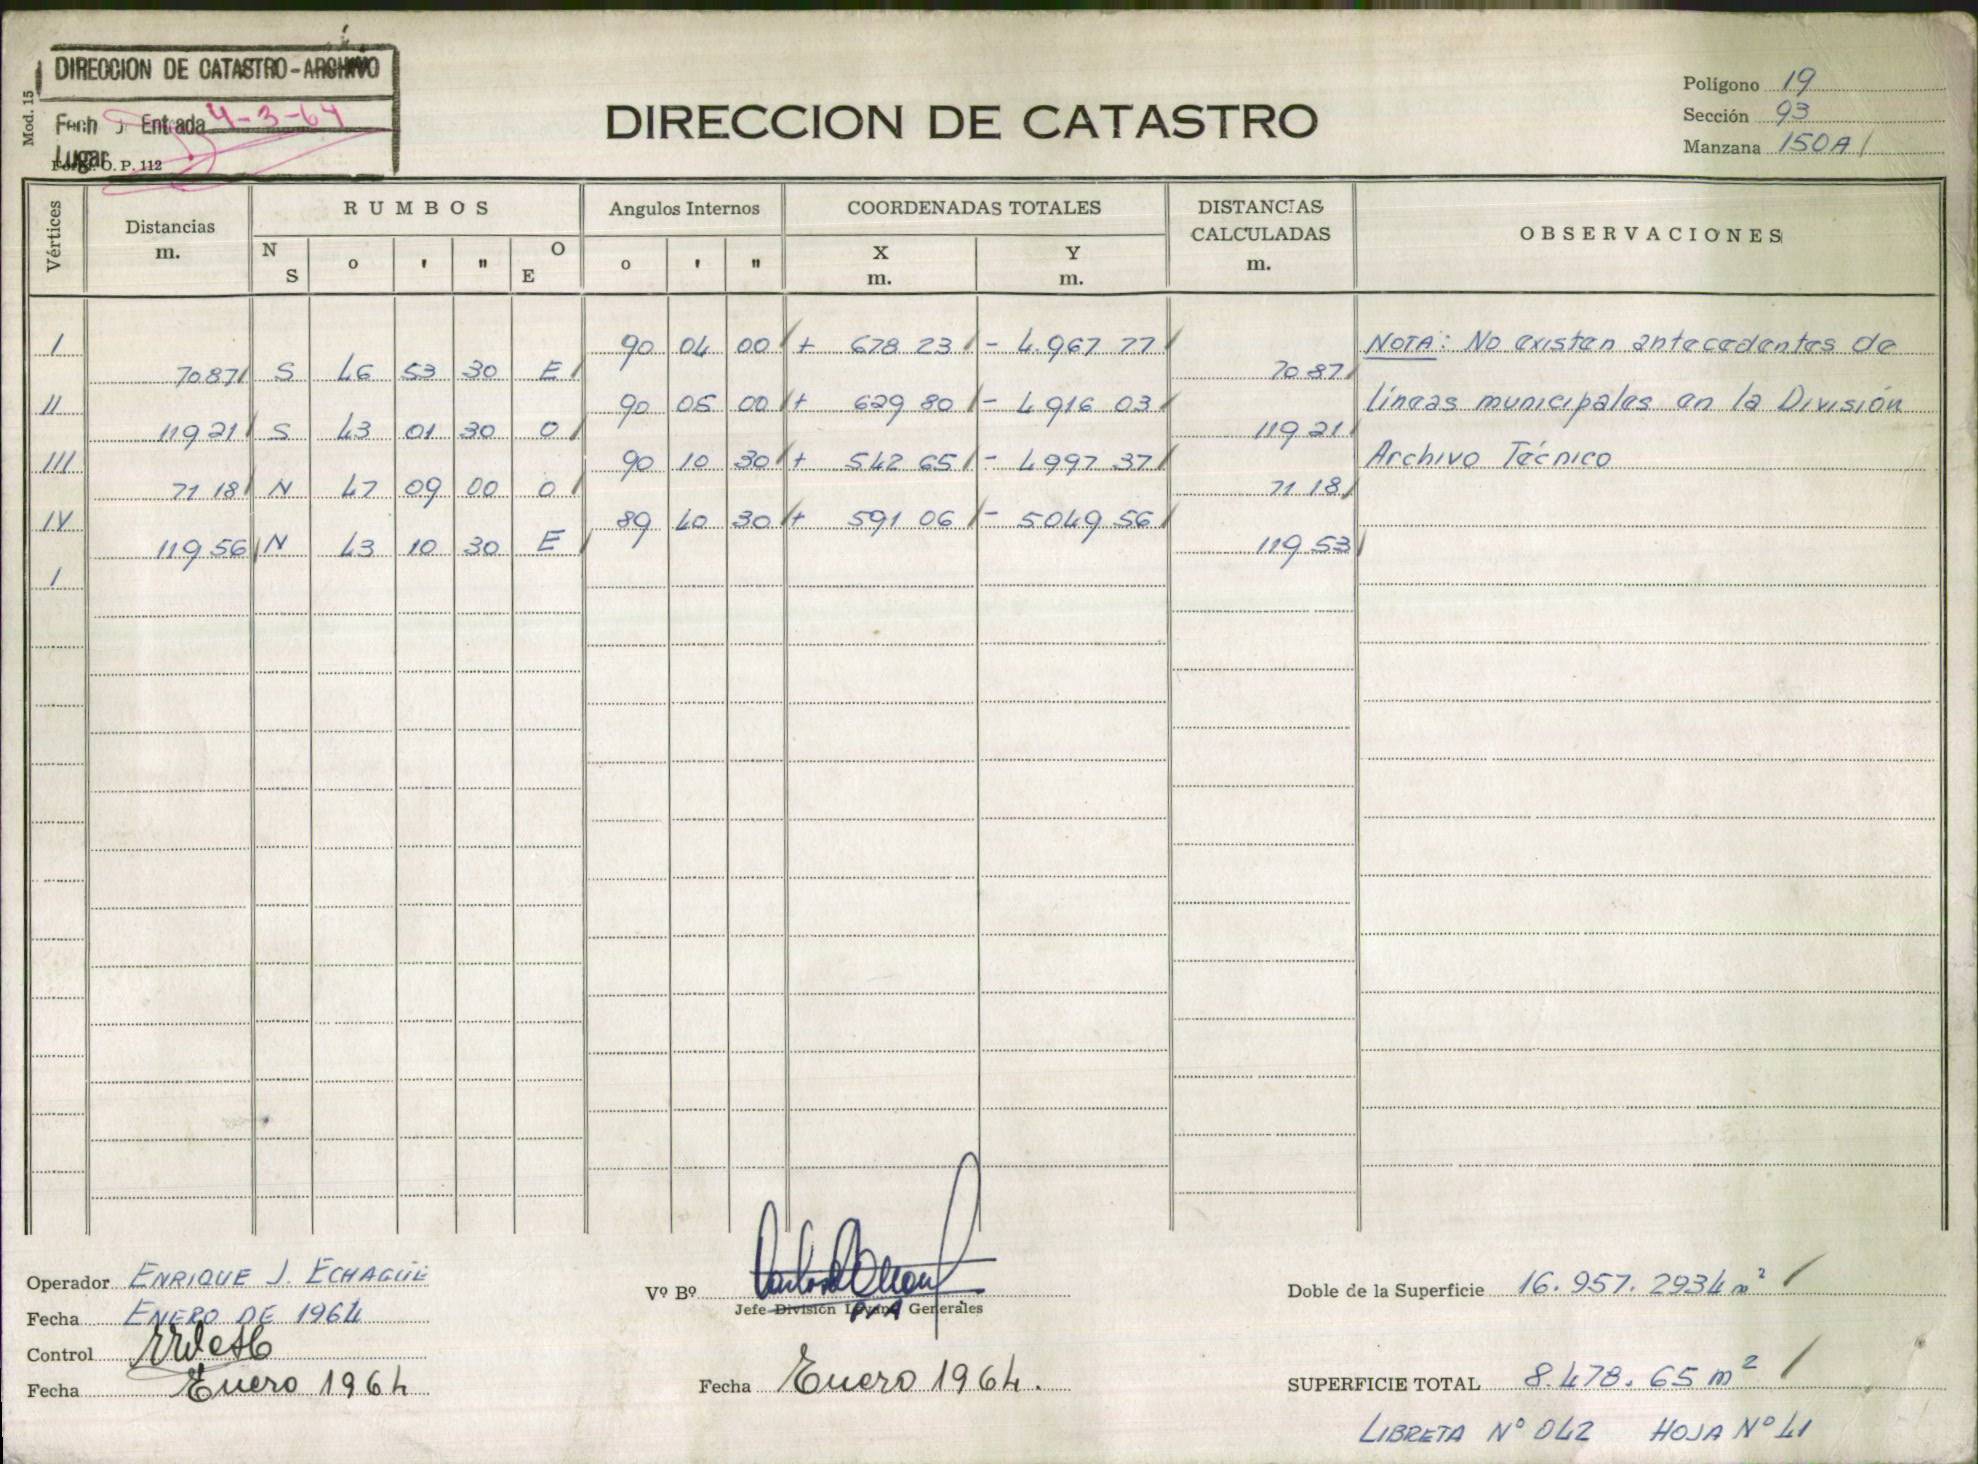 DIRECCION DE CATASTRO - ARCHIVO
Fecha Entrada 4-3-64
Lugar
Mod. 15
Form. O. P. 112
DIRECCION DE CATASTRO
Polígono 19
Sección 93
Manzana 150A
Vértices
Distancias m.
RUMBOS
N S ° ' " O E
Angulos Internos
° ' "
COORDENADAS TOTALES
X m. Y m.
DISTANCIAS CALCULADAS m.
OBSERVACIONES
I 90 04 00 + 678 23 - 4.967 77
70 87 S 46 53 30 E 70 87
II 90 05 00 + 629 80 - 4916 03
119 21 S 43 01 30 O 119 21
III 90 10 30 + 542 65 - 4997 37
71 18 N 47 09 00 O 71 18
IV 89 40 30 + 591 06 - 5049 56
119 56 N 43 10 30 E 119 53
I
NOTA: No existen antecedentes de
líneas municipales en la División
Archivo Técnico
Operador ENRIQUE J. ECHAGÜE
Fecha ENERO DE 1964
Control
Fecha Enero 1964
Vº Bº
Jefe División Generales
Fecha Enero 1964.
Doble de la Superficie 16.957.2934 m²
SUPERFICIE TOTAL 8.478.65 m²
LIBRETA Nº 042 HOJA Nº 41